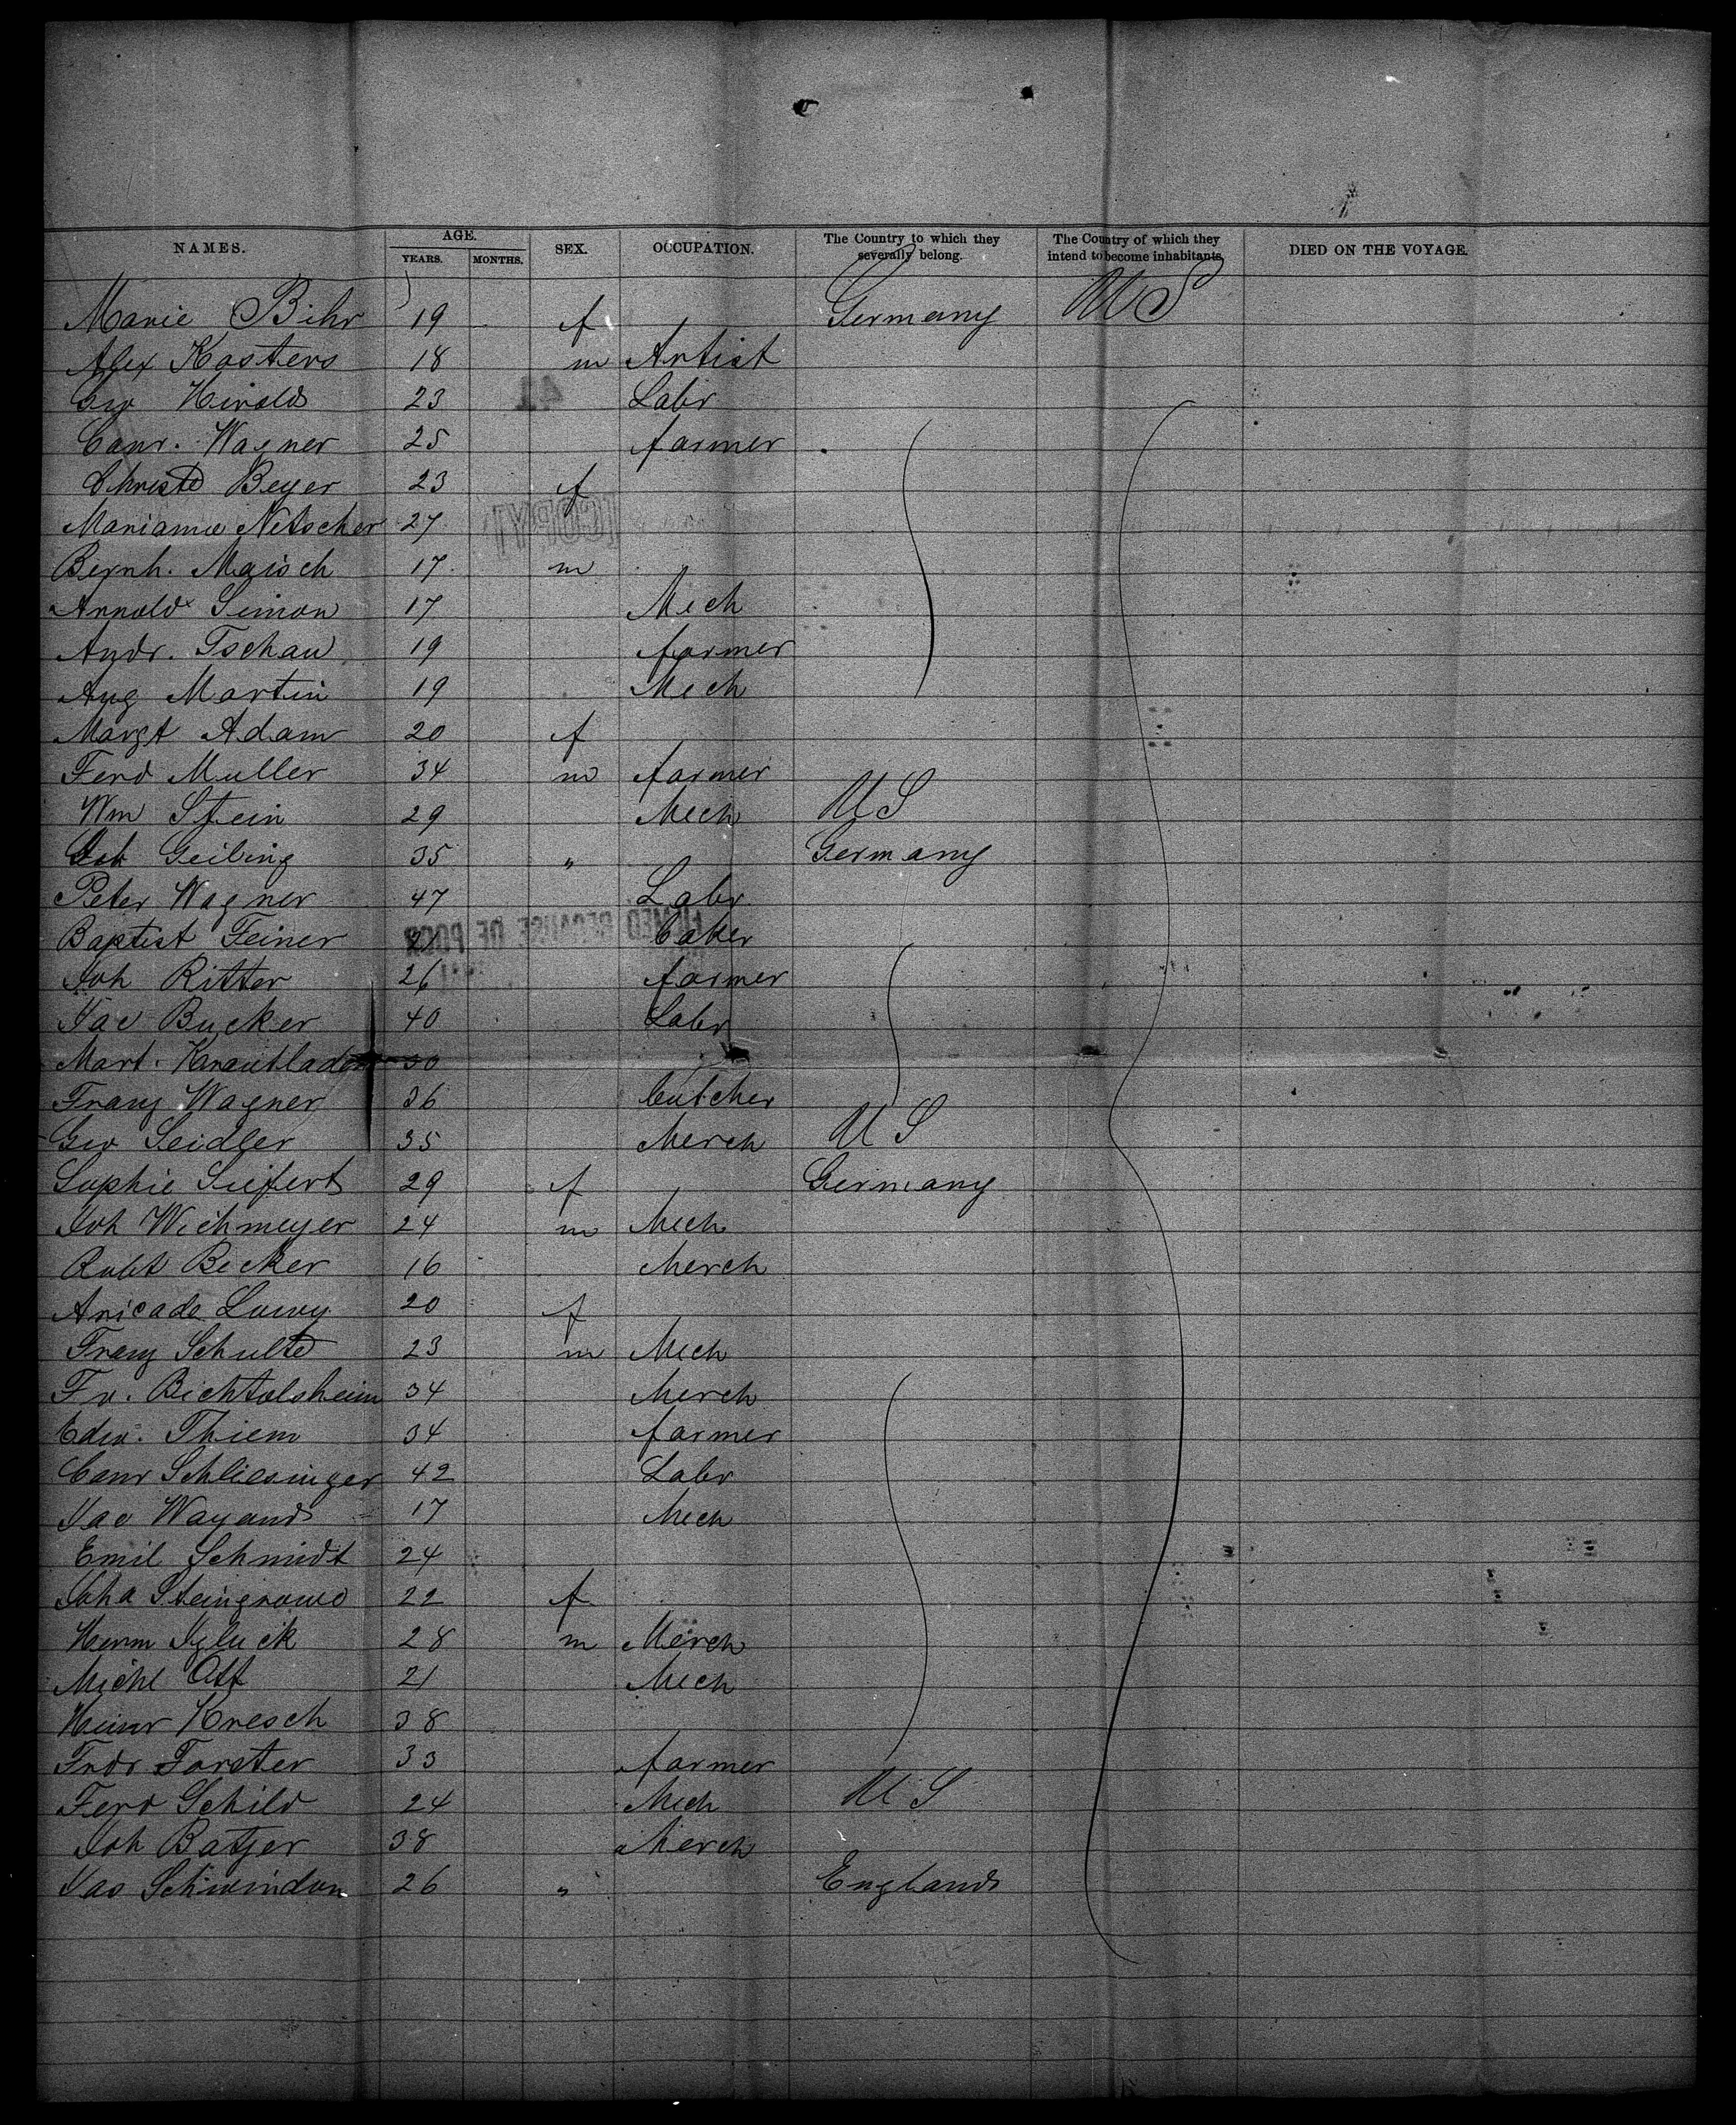 NAMES. AGE. SEX. OCCUPATION. The Country to which they severally belong. The Country of which they intend to become inhabitants. DIED ON THE VOYAGE.
YEARS. MONTHS.
Marie Bihr 19 f Germany U S
Alex Kosters 18 m Artist
Geo Hirold 23 Labr
Conr. Wagner 25 farmer
Beyer 23 f
Netscher 27
Bernh. Maisch 17 m
Arnold Simon 17 Mech
Andr. Tschau 19 farmer
Aug Martin 19 Mech
Margt Adam 20 f
Ferd Muller 34 m farmer
Wm Stein 29 Mech U S
Geiling 35 " Germany
Peter Wagner 47 Labr
Baptist Feiner 21 baker
Joh Ritter 26 farmer
Jac Bucker 40 Labr
Mart. 30
Franz Wagner 36 butcher
Geo Seidler 35 Merch U S
Sophie Siefert 29 f Germany
Joh Wichmeyer 24 m Mech
Robt Becker 16 Merch
20 f
Franz Schulte 23 m Mech
Fr. Bichtolsheim 34 Merch
Edw. Thiem 34 farmer
Conr Schliesinger 42 Labr
Jac Wayand 17 Mech
Emil Schmidt 24
Joha 22 f
Herm Igluck 28 m Merch
Michl Ott 21 Mech
Heinr Kresch 38
Fredr Forster 33 farmer
Ferd Schild 24 Mech U S
Joh Batjer 38 Merch
Jas 26 " England